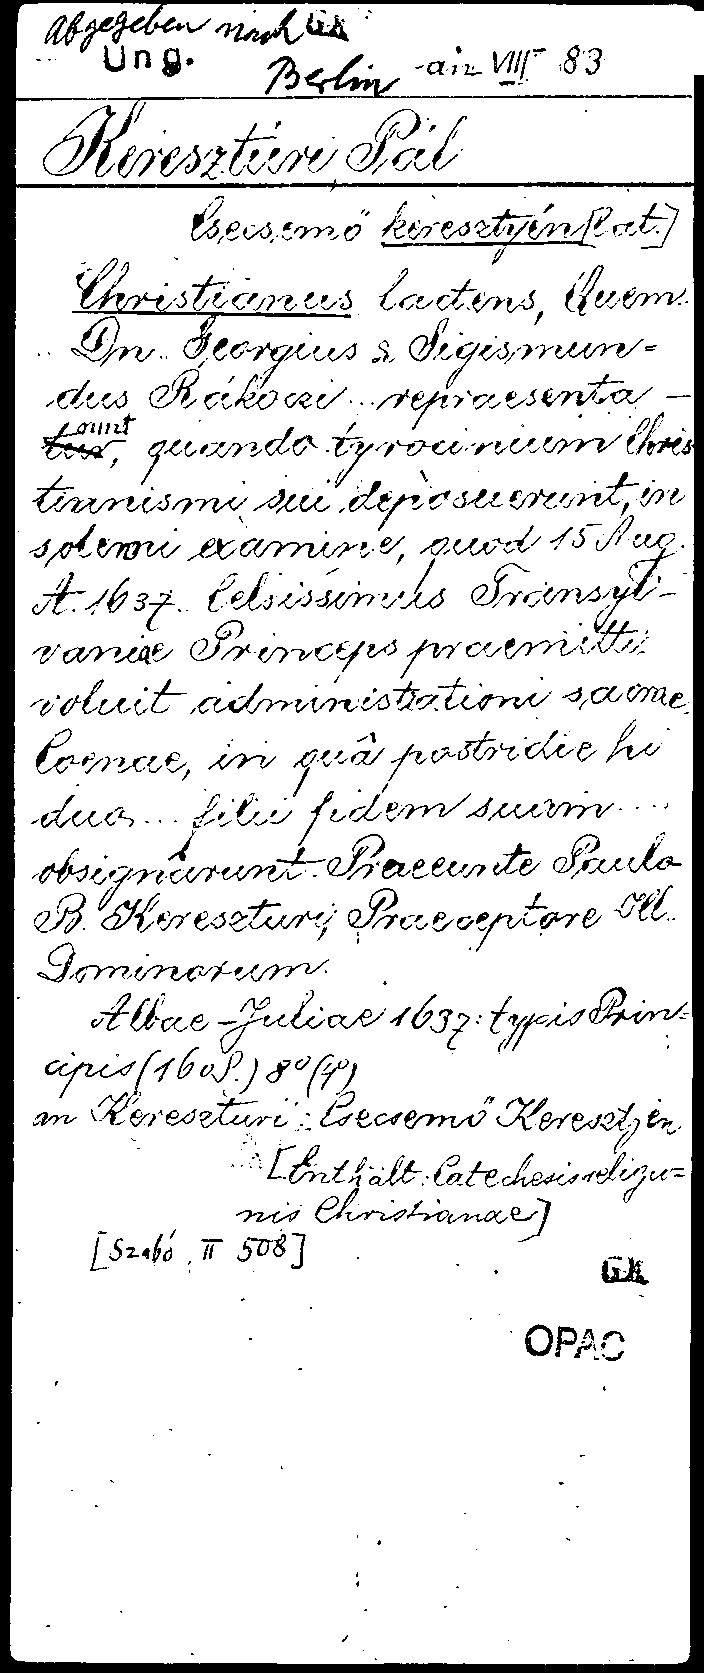 Abgegeben nach GK
Ung.
Berlin ain VIII 83
Keresztúri Pál
Csecsemő keresztyén [lat.]
Christianus lactens, Quem
.. Dn. Georgius & Sigismun=
dus Rákoczi ... repraesenta-
tur, bunt
quando tyrocinium Chris
tianismi sui deposuerunt, in
solemni examine, quod 15 Aug.
A. 1637. Celsissimus Transyl-
vaniae Princeps praemitti
voluit administrationi sacrae
Coenae, in quâ postridie hi
duo ... filii fidem suam ....
obsignârunt. Praeeunte Paulo
B. Kereszturi, Praeceptore Ill.
Dominorum.
Albae-Juliae 1637: typis Prin=
cipis (160 S.) 8° (4°)
an Kereszturi: Csecsemő Keresztjén
[Enthält: Catechesis religio=
nis Christianae]
[Szabó, II 508]
GK
OPAC